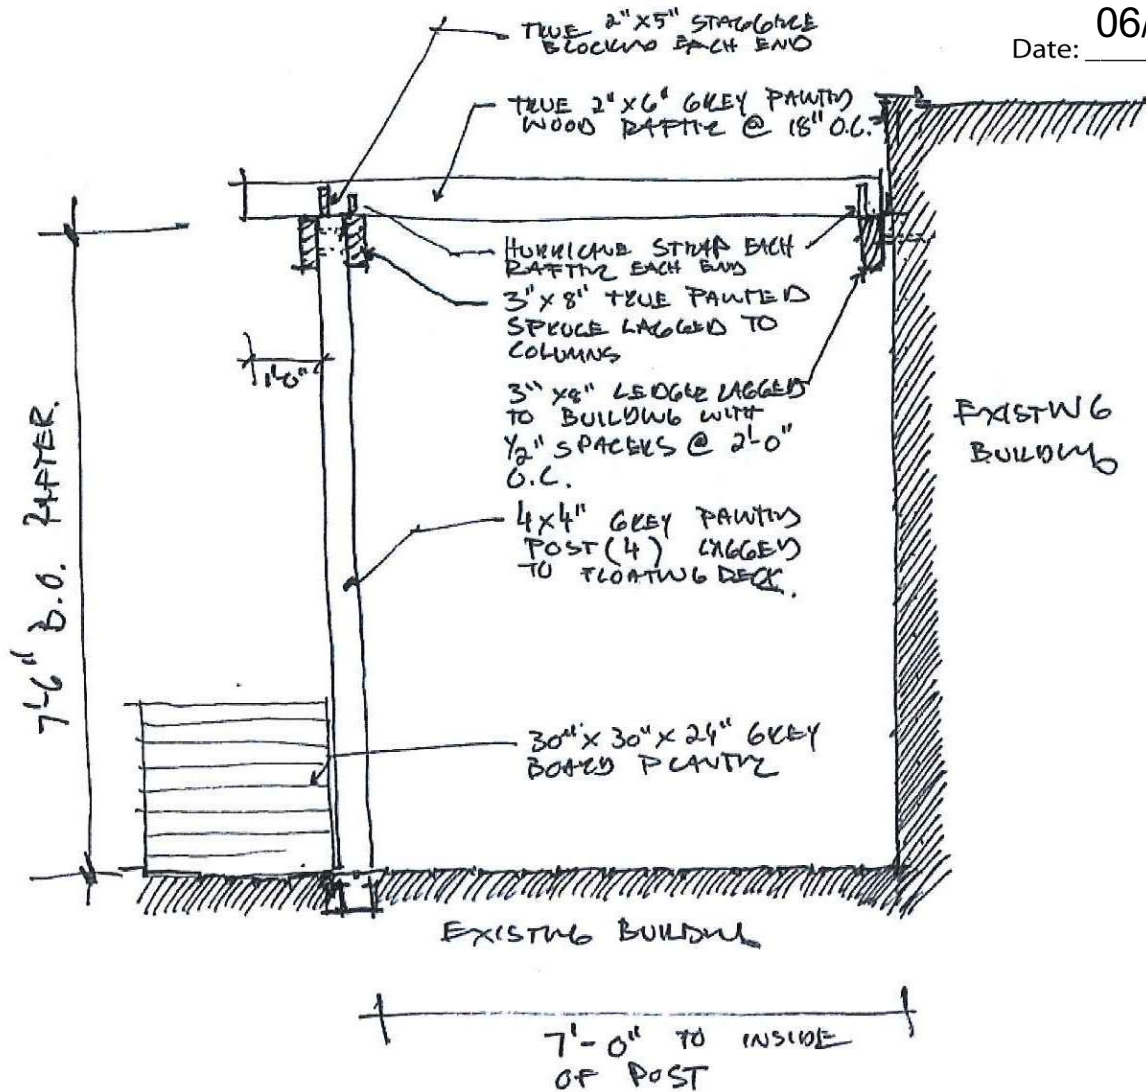 06/
Date:
TRUE 2" X 5" STAGGERED
BLOCKING EACH END
TRUE 2" X 6" GREY PAINTED
WOOD RAFTER @ 18" O.C.
HURRICANE STRAP EACH
RAFTER EACH END
3" X 8" TRUE PAINTED
SPRUCE LAGGED TO
COLUMNS
1'-0"
3" X 8" LEDGER LAGGED
TO BUILDING WITH
1/2" SPACERS @ 2'-0"
O.C.
EXISTING
BUILDING
4 X 4" GREY PAINTED
POST (4) LAGGED
TO FLOATING DECK.
7'-6" B.O. RAFTER.
30" X 30" X 24" GREY
BOARD PLANTER
EXISTING BUILDING
7'-0" TO INSIDE
OF POST